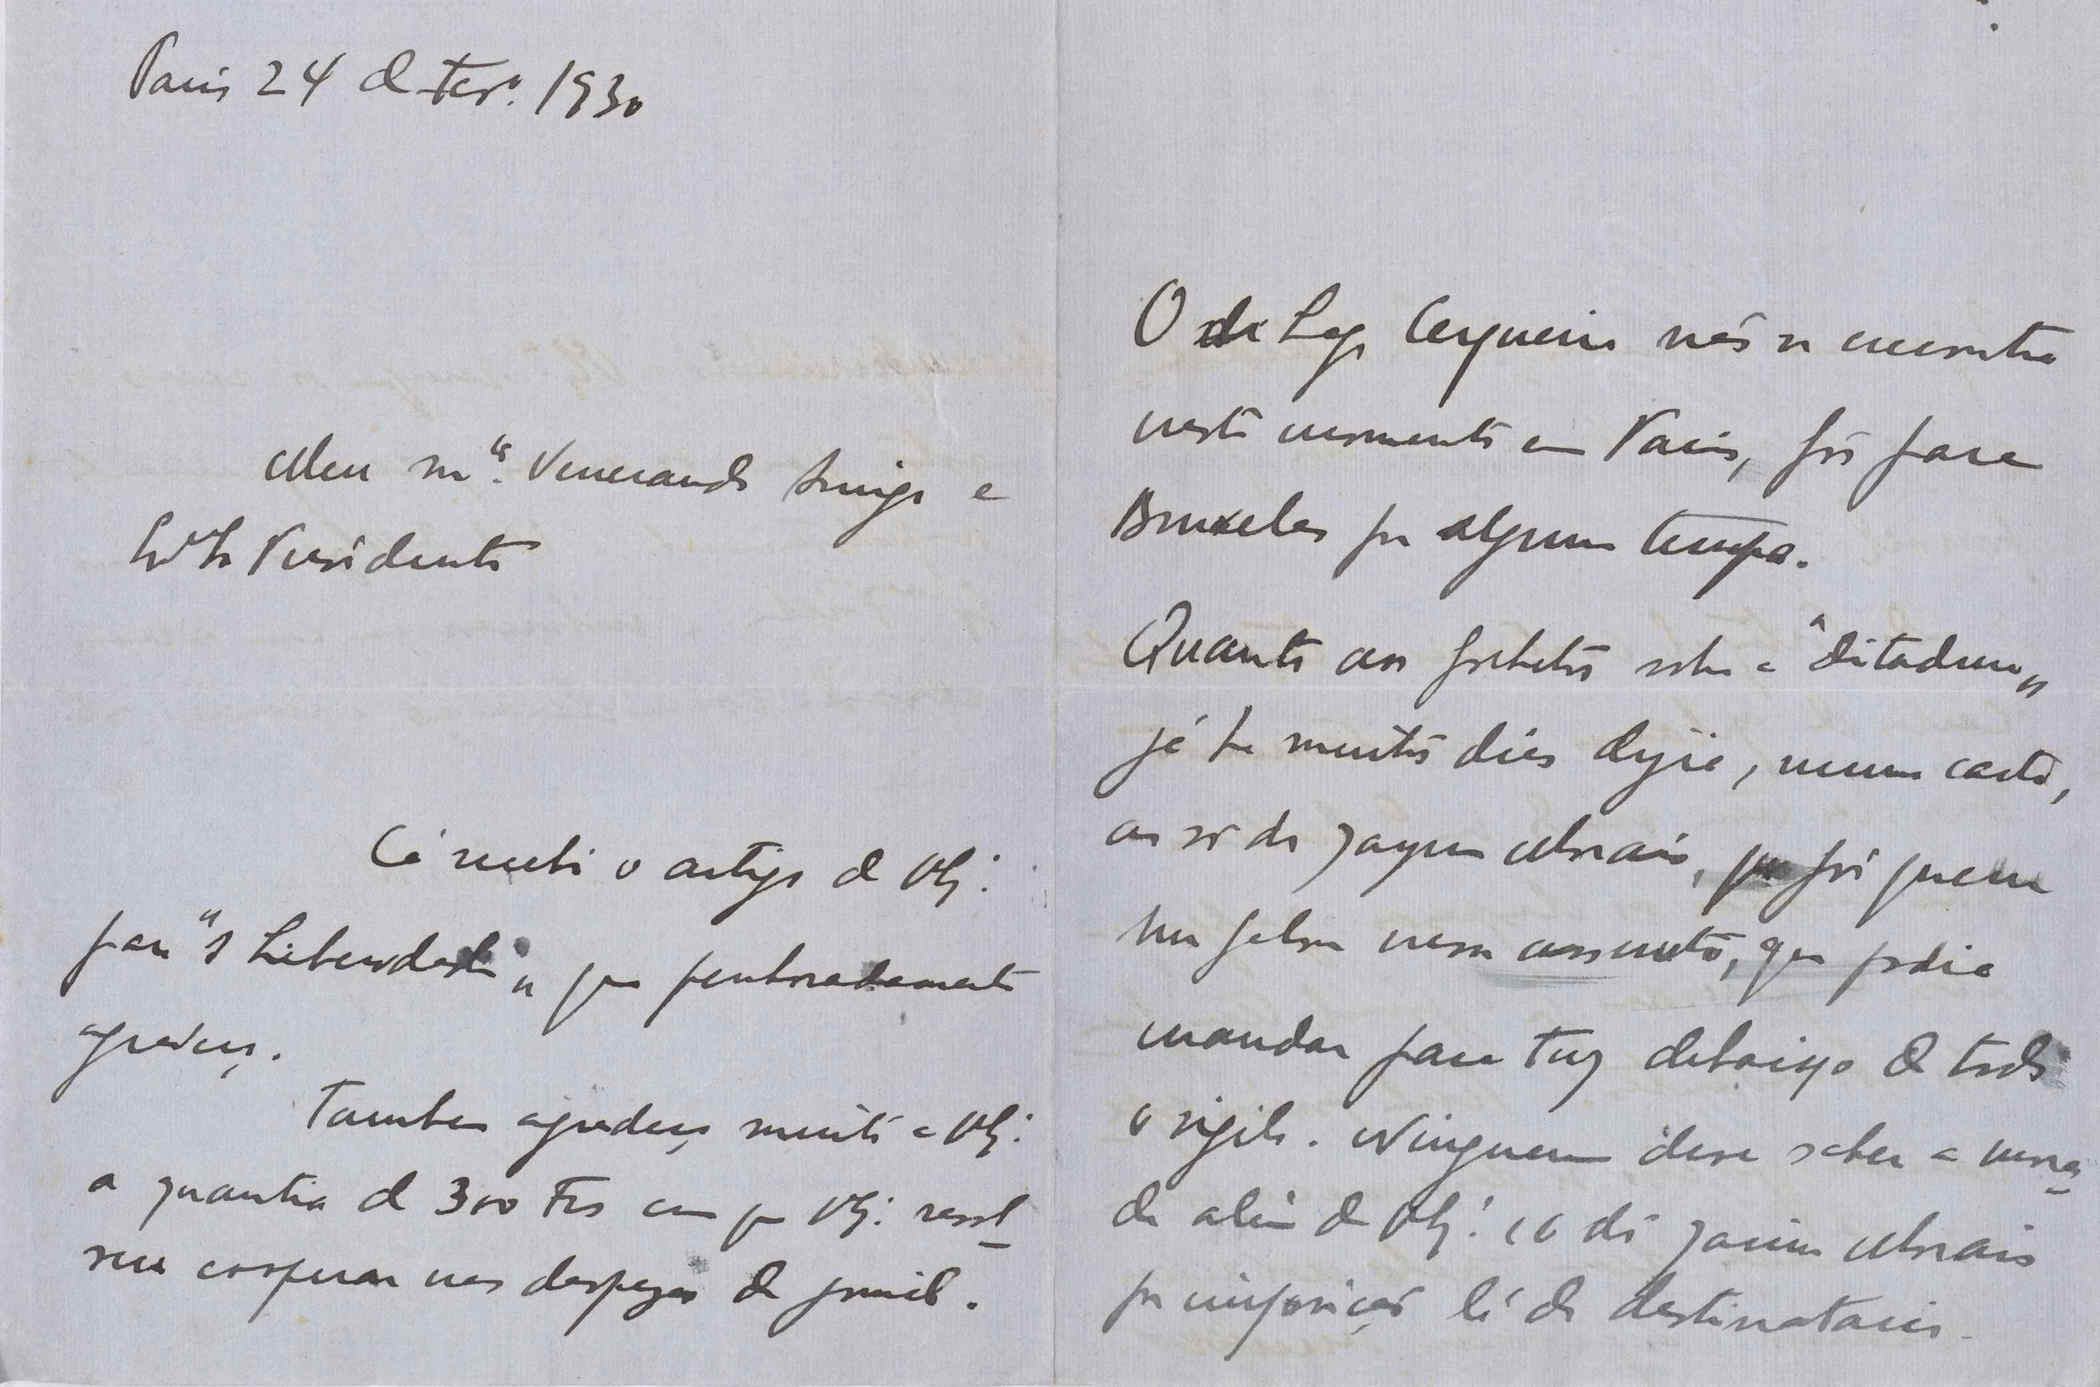 Paris 24 de Fevº. 1930
Meu mtº. Venerando Amigo e
Presidente
Cá recebi o artigo de V. Ex.
para "A Liberdade" que penhoradamente
agradeço.
Tambem agradeço muito a
a quantia de 300 Frs com que resol-
veu cooperar nas despezas do jornal.
O dr Cerqueira não se encontra
neste momento em Paris, foi para
Bruxelas por algum tempo.
Quanto aos folhetos sobre a "ditadura"
já ha muitos dias dizia, numa carta,
ao sr dr Jayme Morais, que foi quem
me falou nesse assunto, que podia
mandar para Tuy debaixo de todo
o sigilo. Ninguem deve saber a mora-
da além de e o dr Jaime Morais
por imposição lá do destinatario.